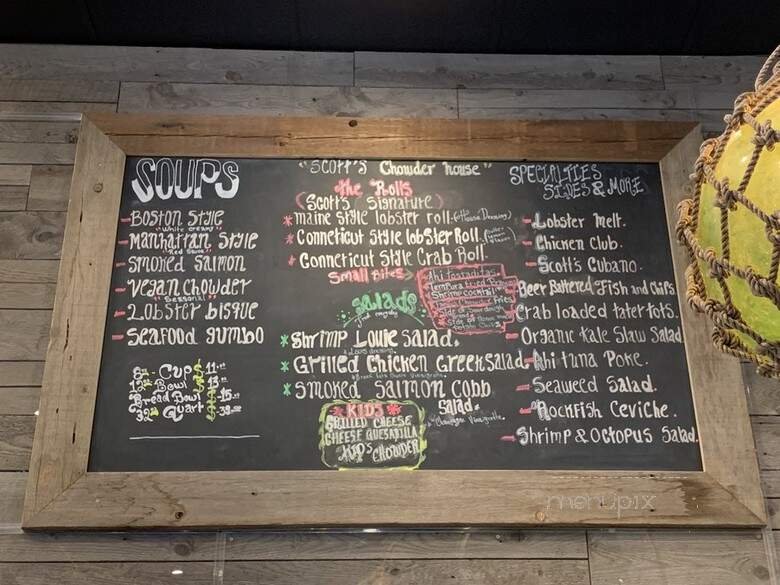 SOUPS
Boston Style
"White creamy"
Manhattan Style
"Red Sauce"
Smoked Salmon
Vegan Chowder
"Seasonal"
Lobster Bisque
Seafood Gumbo
8oz - Cup $
12oz Bowl $
Bread Bowl $
32oz Quart $
"Scott's Chowder House"
The Rolls
(Scott's Signature)
Maine Style lobster roll
Connecticut Style lobster Roll
Connecticut Style Crab Roll
Small Bites
Ahi Tostaditas
Shrimp cocktail
Fries
Salads
Shrimp Louie Salad
Grilled Chicken Greek Salad
Smoked Salmon Cobb
Salad
KIDS
Grilled Cheese
Cheese Quesadilla
Kid's Chowder
Specialties
Sides & More
Lobster Melt.
Chicken Club.
Scott's Cubano.
Beer Battered Fish and Chips.
Crab loaded tater tots.
Organic Kale Slaw Salad
Ahi tuna Poke.
Seaweed Salad.
Rockfish Ceviche.
Shrimp & Octopus Salad.
menupix